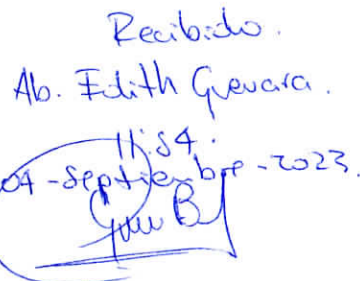 Recibido.
Ab. Edith Guevara.
11:54.
04-septiembre-2023.